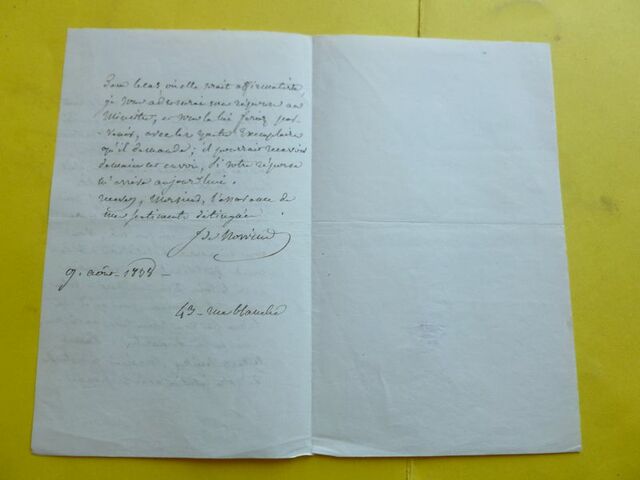 Dans le cas, où elle serait affirmative,
je vous adresserai une réponse au
Ministre, et vous la lui feriez par-
venir, avec les quatre Exemplaires
qu'il demande; il pourrait recevoir
demain cet envoi, si votre réponse
m'arrive aujourd'hui.
recevez, Monsieur, l'assurance de
mes sentiments distingués.
J de
9. août
43 - rue blanche